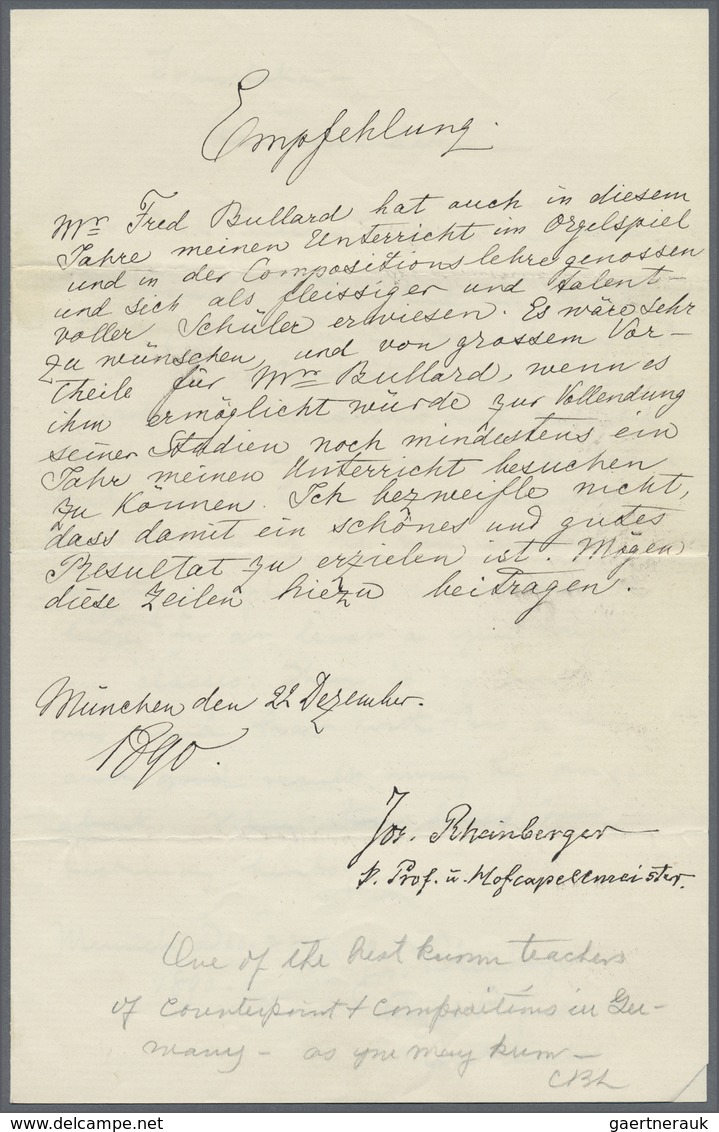 Empfehlung.
Mr Fred Bullard hat auch in diesem
Jahre meinen Unterricht im Orgelspiel
und in der Compositionslehre genossen
und sich als fleissiger und talent-
voller Schüler erwiesen. Es wäre sehr
zu wünschen, und von grossem Vor-
theile für Mr Bullard, wenn es
ihm ermöglicht würde zur Vollendung
seiner Studien noch mindestens ein
Jahr meinen Unterricht besuchen
zu können. Ich bezweifle nicht,
dass damit ein schönes und gutes
Resultat zu erzielen ist. Mögen
diese Zeilen hiezu beitragen.
München den 22 Dezember.
1890.
Jos. Rheinberger
k. Prof. u. Hofcapellmeister.
One of the best known teachers
of Counterpoint & Compositions in Ger-
many - as you may know -
gaertnerauk